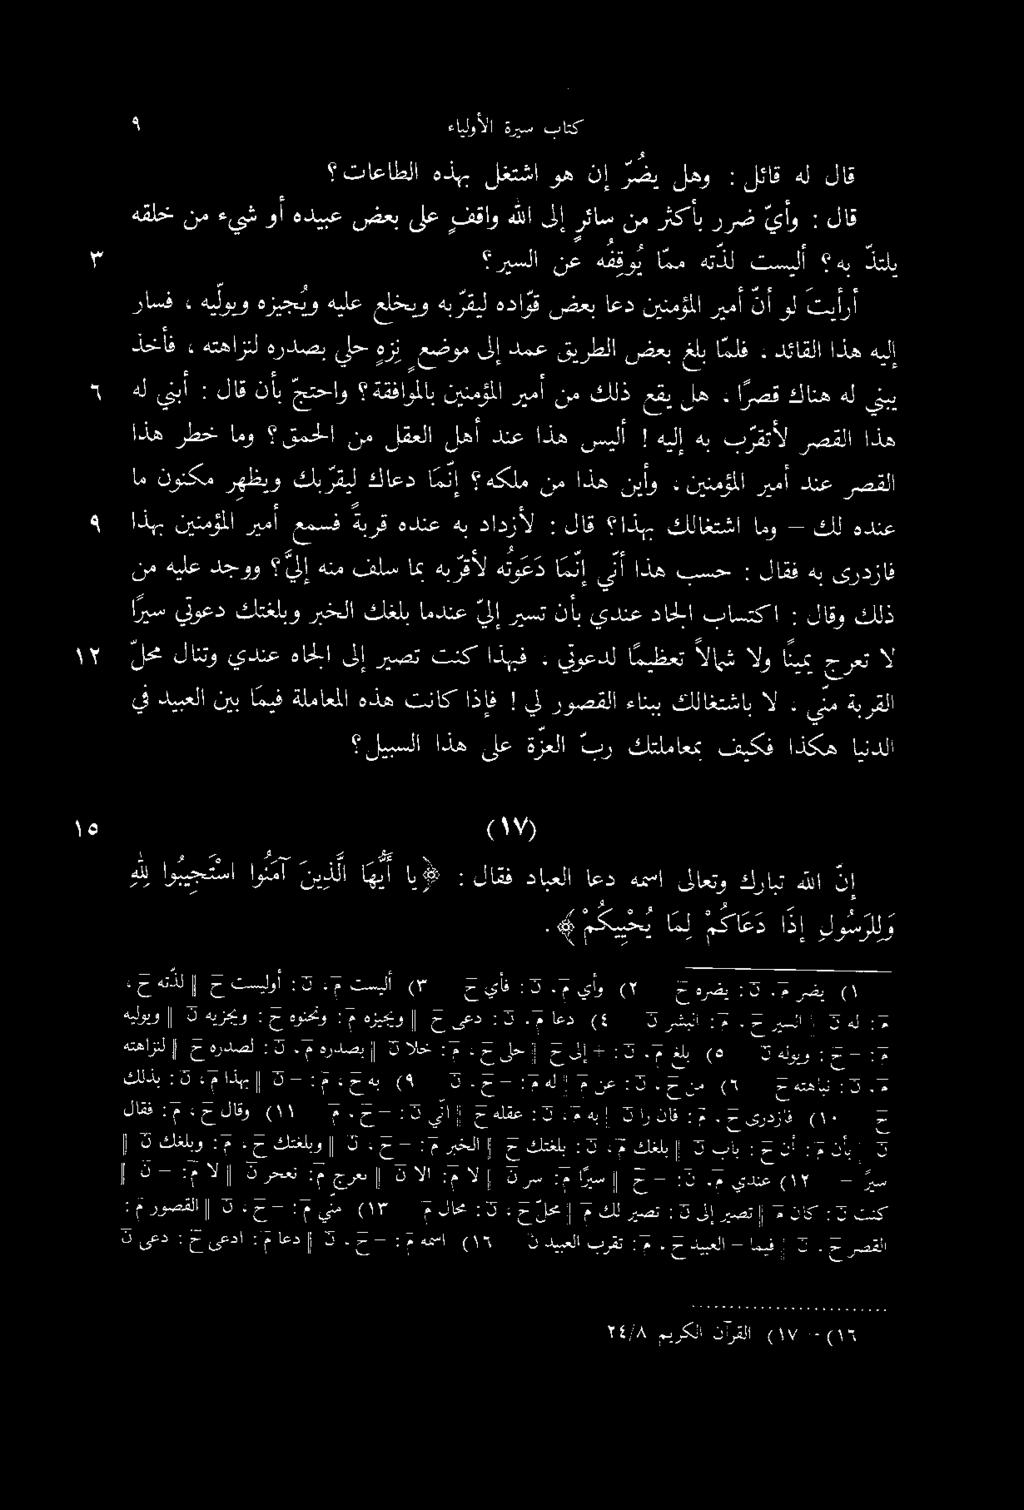 كتاب سيرة الأولياء ٩
قال له قائل : وهل يضُرّ إن هو اشتغل بهذه الطاعات؟
قال : وأيّ ضرر بأكثر من سائرٍ إلى الله واقفٍ على بعض عبيده أو شيء من خلقه
يلتذّ به؟ أليست لذّته ممّا يُوقِفُه عن السير؟ ٣
أرأيتَ لو أنّ أمير المؤمنين دعا بعض قوّاده ليقرّبه ويخلع عليه ويُجيزه ويولّيه ، فسار
إليه هذا القائد . فلمّا بلغ بعض الطريق عمد إلى موضع نزِهٍ حلي بصدره لنزاهته ، فأخذ
يبني له هناك قصرًا . هل يقع ذلك من أمير المؤمنين بالموافقة؟ واحتجّ بأن قال : أبني له ٦
هذا القصر لأتقرّب به إليه ! أليس هذا عند أهل العقل من الحمق؟ وما خطر هذا
القصر عند أمير المؤمنين . وأين هذا من ملكه؟ إنّما دعاك ليقرّبك ويظهِر مكنون ما
عنده لك – وما اشتغالك بهذا؟ قال : لأزداد به عنده قربةً فسمع أمير المؤمنين بهذا ٩
فازدرى به فقال : حسب هذا أنّي إنّما دَعَوتُه لأقرّبه بما سلف منه إليَّ؟ ووجد عليه من
ذلك وقال : اكتساب الجاه عندي بأن تسير إليّ عندما بلغك الخبر وبلغتك دعوتي سيرًا
لا تعرج يمينًا ولا شمالاً تعظيمًا لدعوتي . فبهذا كنت تصير إلى الجاه عندي وتنال محلّ ١٢
القربة منّي . لا باشتغالك ببناء القصور لي ! فإذا كانت هذه المعاملة فيما بين العبيد في
الدنيا هكذا فكيف بمعاملتك ربّ العزّة على هذا السبيل؟
(١٧) ١٥
إنّ الله تبارك وتعالى اسمه دعا العباد فقال : ﴿يا أَيُّهَا الَّذِينَ آمَنُوا اسْتَجِيبُوا لِلّهِ
وَلِلرَسُولِ إذَا دَعَاكُمْ لِمَا يُحْيِيكُمْ﴾ .
١) يضر م . ن : يضره ح ٢) وأي م . ن : فأي ح ٣) أليست م . ن : أوليست ح ‖ لذّته ح ،
م : له ن ‖ السير ح . م : البشر ن ٤) دعا م . ن : دعى ح ‖ ويجيزه م : ونحوه ح : ويجزيه ن ‖ ويوليه
م : – ح : ويوله ن ٥) بلغ م . ن : + إلى ح ‖ حلى ح ، م : خلا ن ‖ بصدره م . ن : لصدره ح ‖ لنزاهته
م . ن : نباهته ح ٦) من ح . ن : عن م ‖ له م : – ح . ن ٩) به ح ، م : – ن ‖ بهذا م . ن : بذلك
ح ١٠) فازدرى ح . م : فاق ارا ن ‖ به م . ن : عقله ح ‖ أنّي ن : – ح . م ١١) وقال ح ، م : فقال
ن ‖ بأن م : أن ح : باب ن ‖ بلغك م . ن : بلغتك ح ‖ الخبر م : – ح . ن ‖ وبلغتك ح . م : وبلغك ن ‖
سيرً – ١٢) عندي م . ن : – ح ‖ سيرًا م : سر ن ‖ لا م : الا ن ‖ يعرج م : تعحر ن ‖ لا م : – ن ‖
كنت ن : كان م ‖ تصير إلى ن : تصير لك م ‖ محلّ ح ، ن : لامحال م ١٣) منّي م : – ح ، ن ‖ القصور م :
القصر ح . ن ‖ فيما – العبيد ح . م : تقرب العبيد ن ١٦) اسمه م : – ح . ن ‖ دعا م : ادعى ح : دعى ن
١٦)–١٧) القرآن الكريم ٢٤/٨